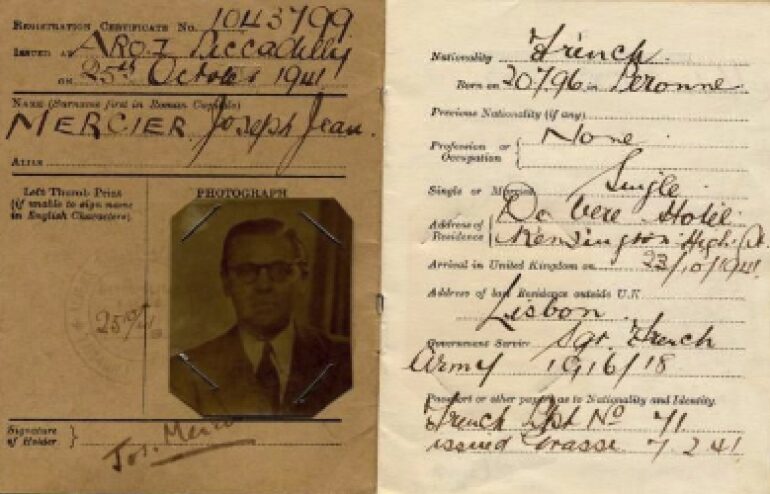 REGISTRATION CERTIFICATE No. 1043799
ISSUED AT ARO7 Piccadilly
ON 25th October 1941
NAME (Surname first in Roman Capitals)
MERCIER Joseph Jean.
ALIAS
Left Thumb Print
(if unable to sign name
in English Characters).
PHOTOGRAPH
25/10/41
Signature
of Holder.
Jos. Mercier
Nationality French.
Born on 20/7/96 in Peronne
Previous Nationality (if any)
Profession or
Occupation
None.
Single or Married Single.
Address of
Residence
De Vere Hotel
Kensington High St.
Arrival in United Kingdom on 23/10/1941
Address of last Residence outside U.K.
Lisbon.
Government Service Sgt. French
Army 1916/18
Passport or other papers as to Nationality and Identity.
French Ppt No 71
issued Grasse 7.2.41